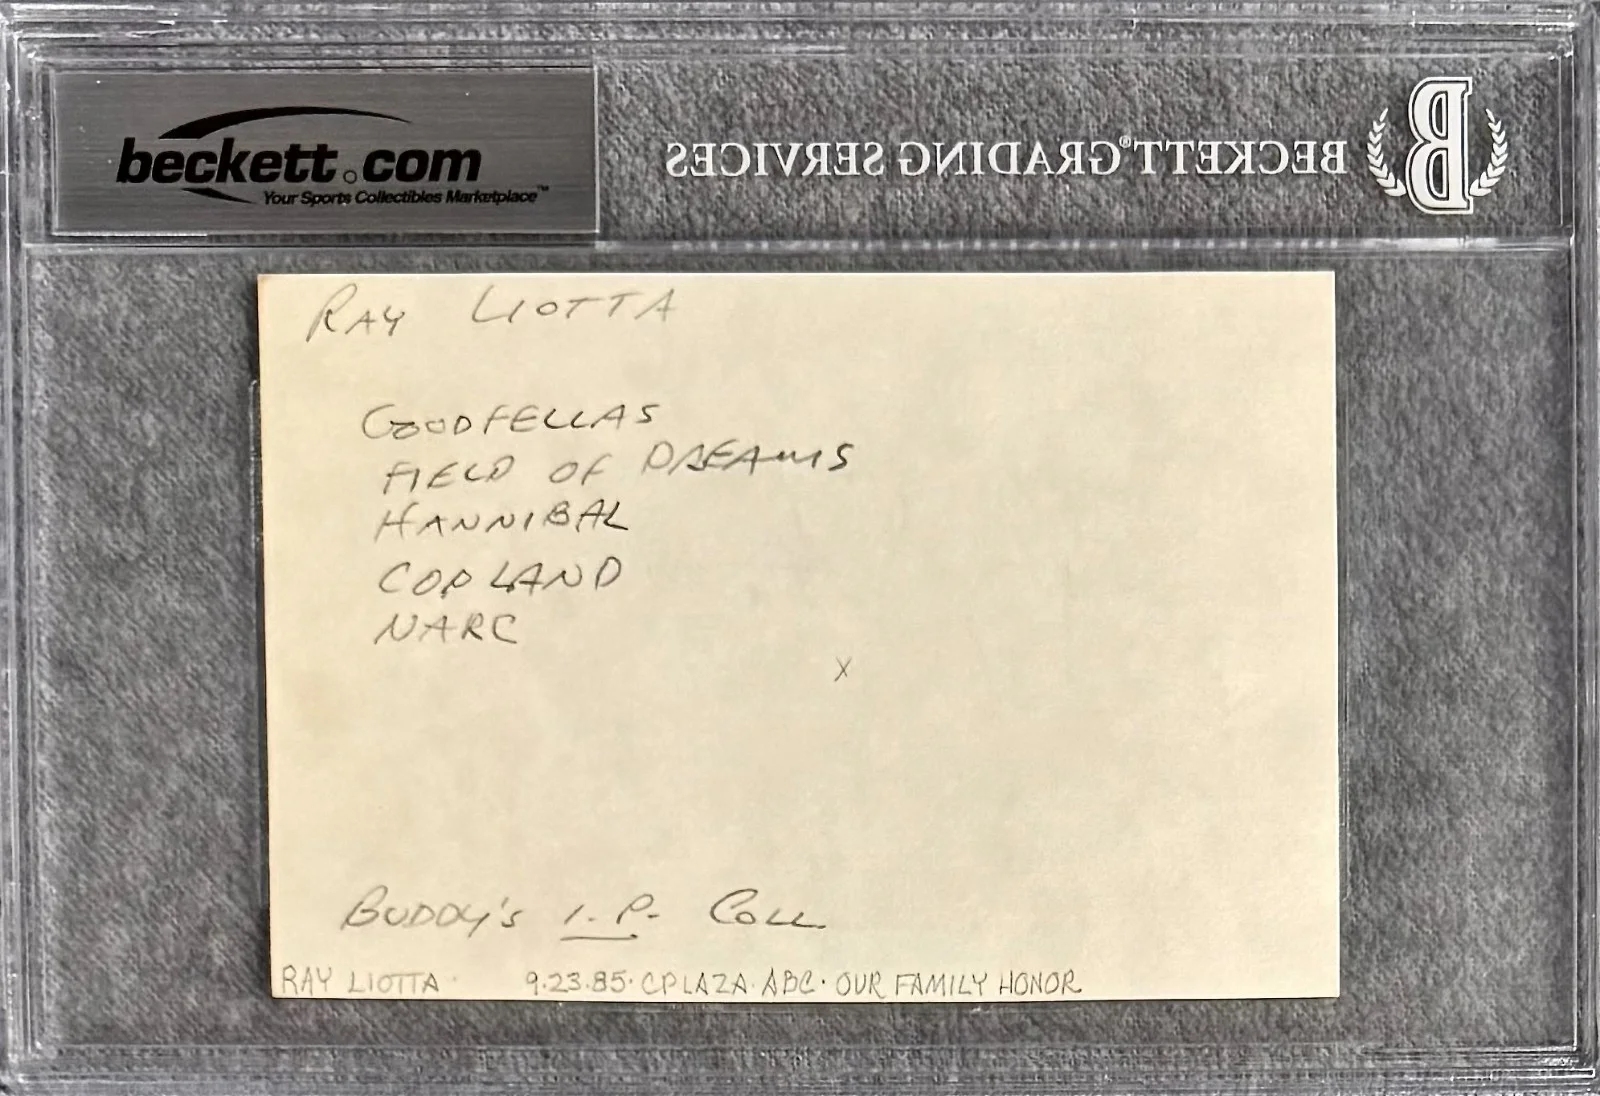 beckett.com
Your Sports Collectibles Marketplace™
BECKETT® GRADING SERVICES
B
RAY LIOTTA
GOODFELLAS
FIELD OF DREAMS
HANNIBAL
COPLAND
NARC
X
BUDDY'S I.P. COLL
RAY LIOTTA · 9·23·85· CPLAZA· ABC· OUR FAMILY HONOR